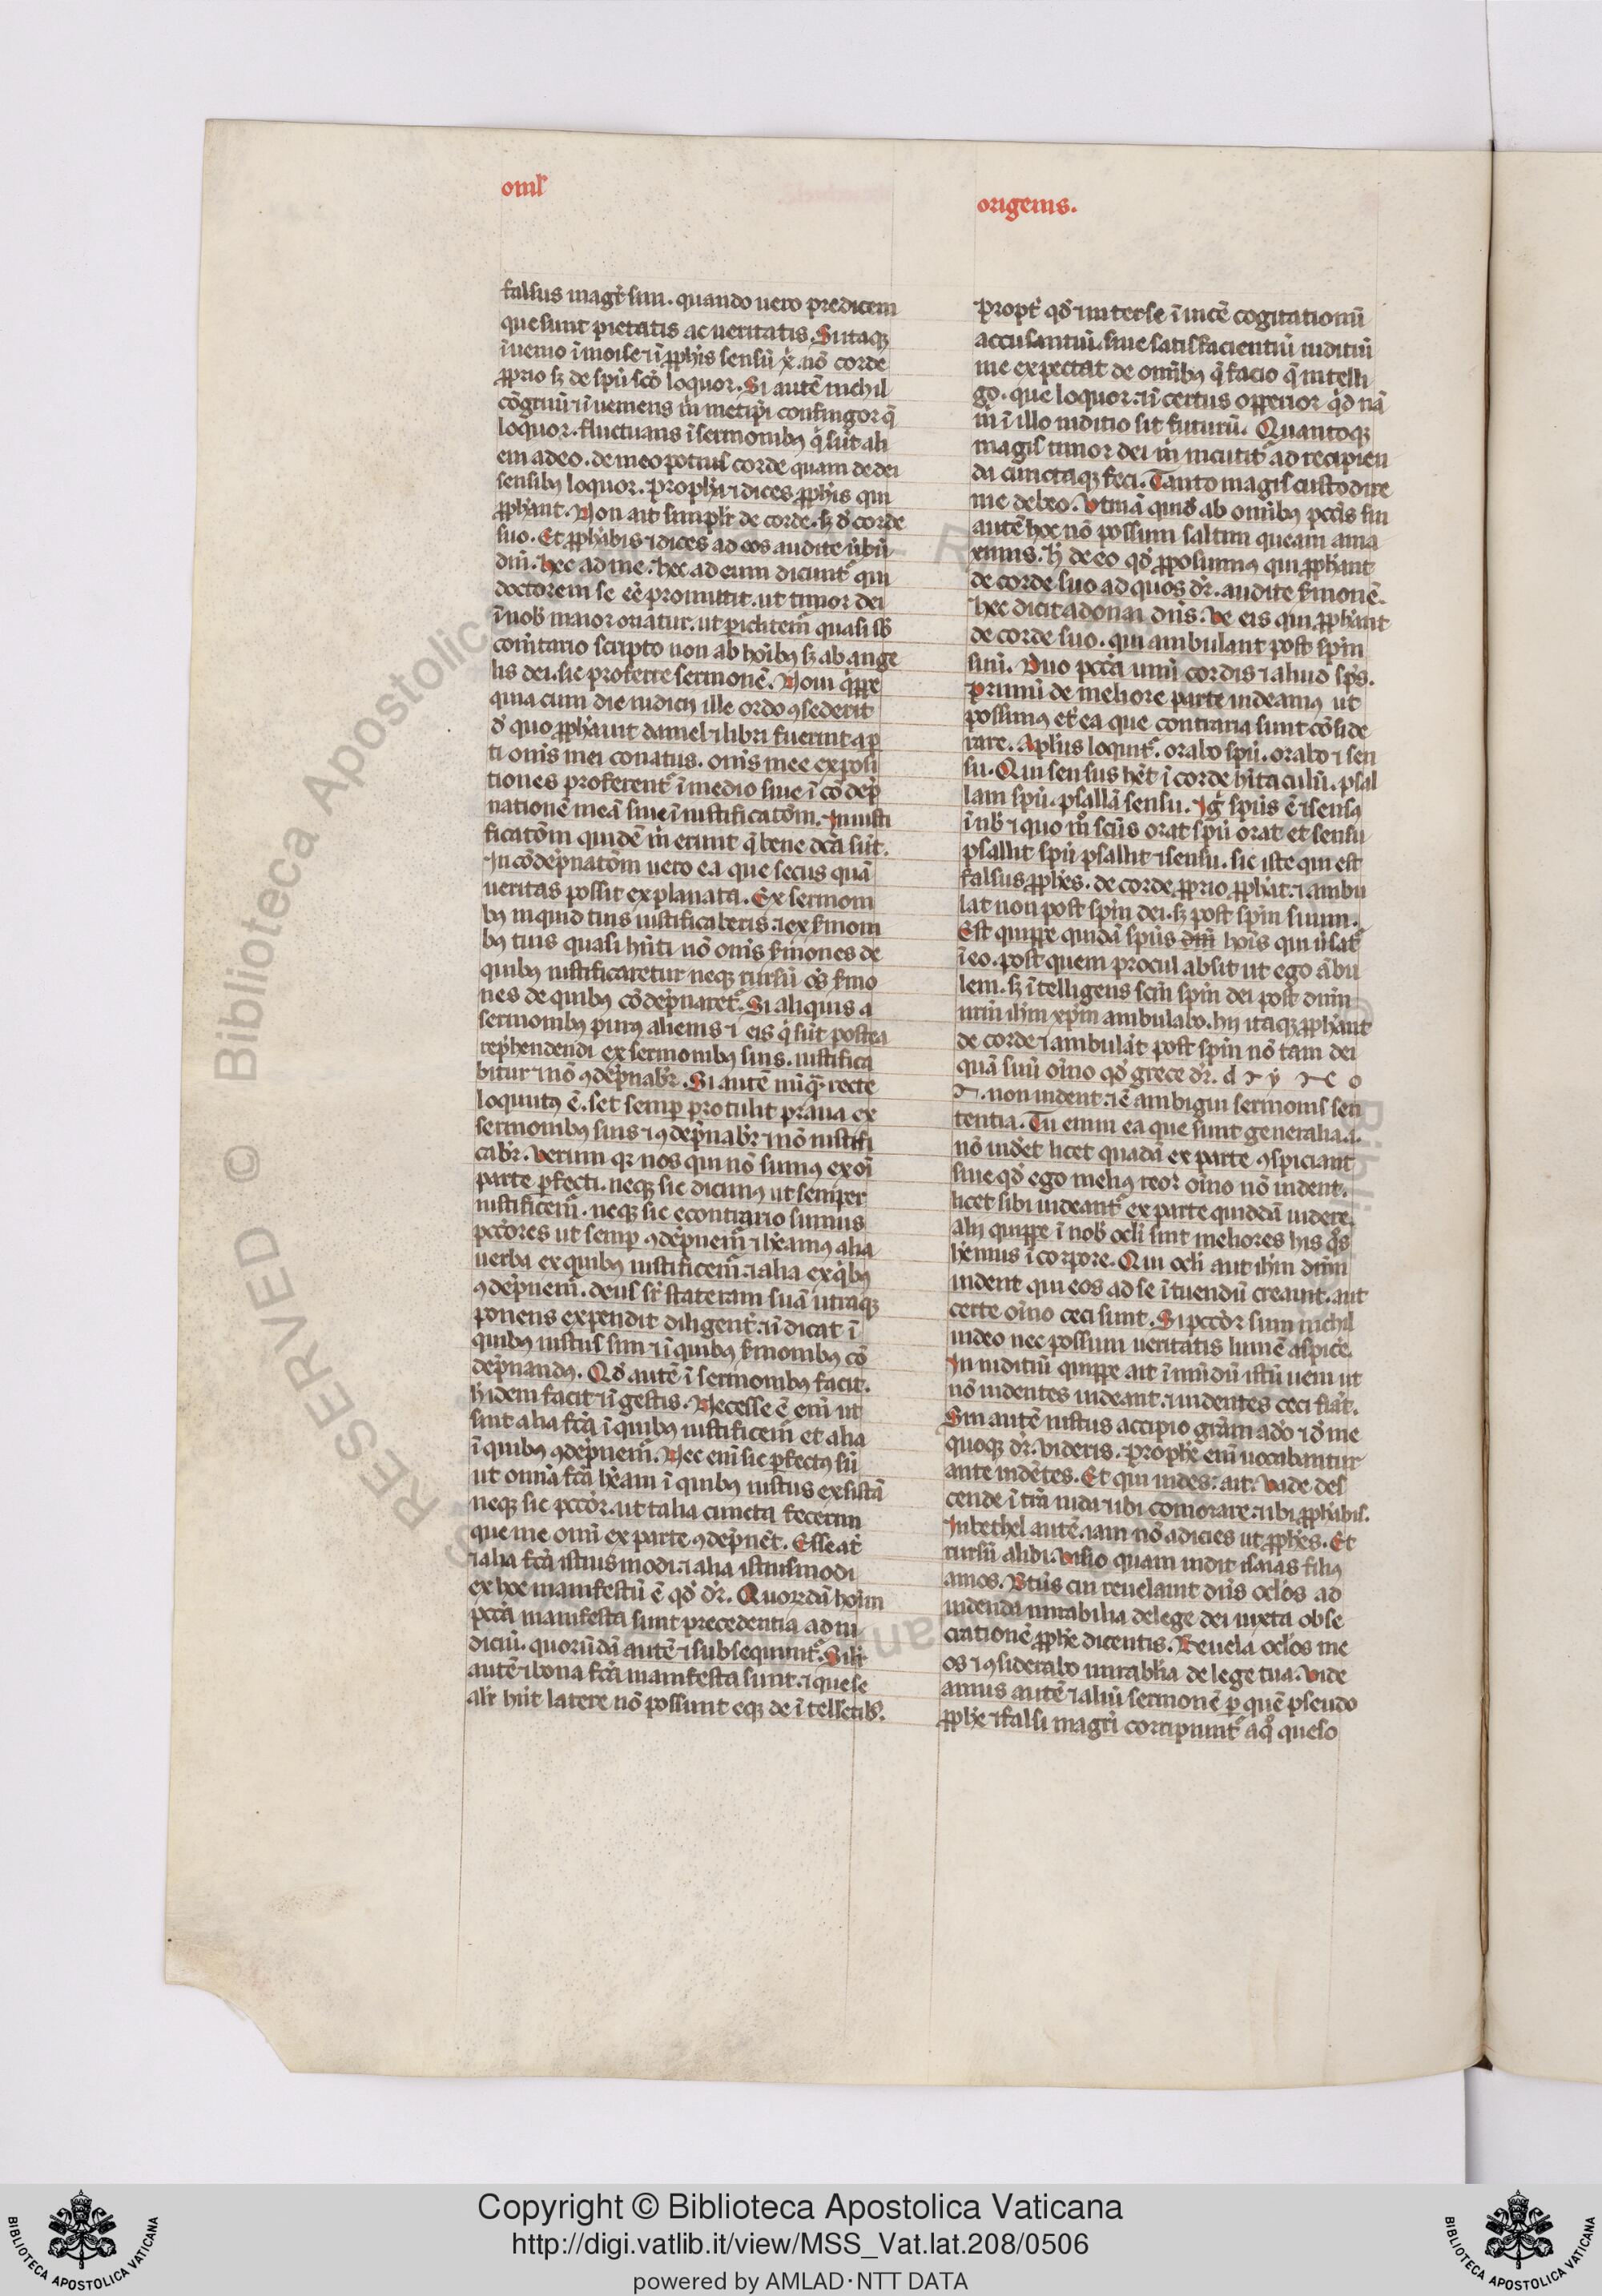 oml'
origenis.
falsus magr̃ sim. quando uero predicem
que sunt pietatis ac ueritatis. Si itaq;
ĩuenio ĩ moise ⁊ ĩ ꝓphis sensũ x̃. nõ corde
ꝓprio sꝫ de spũ scõ loquor. Si autẽ nichil
cõgruũ ⁊ ĩueniens m̃ metip̃i confingor q̃
loquor. fluctuans ĩ sermonibꝰ q̃ sũt ali
em adeo. de meo potius corde quam de dei
sensibꝰ loquor. Prophã ⁊ dices ꝓphis qui
ꝓphãnt. Non ait simplr̃ de corde. sꝫ d̃ corde
suo. Et ꝓphãbis ⁊ dices ad eos audite ũbũ
dñi. hec ad me. hec ad eum dicunt̃ qui
doctorem se eẽ promittit. ut timor dei
ĩ nob̃ maior oriatur. ut ꝑiclitem̃ quasi sb̃
com̃tario scripto non ab hoĩbꝰ sꝫ ab ange
lis dei. sic proferre sermonẽ. Noui q̃ppe
quia cum die iudicij ille ordo ꝯsederit
d̃ quo ꝓphauit daniel ⁊ libri fuerint aꝑ
ti omĩs mei conatus. omĩs mee exposi
tiones proferent̃ ĩ medio siue ĩ cõdep̃
nationẽ meã siue ĩ iustificatõm. In iusti
ficatõm quidẽ m̃ erunt q̃ bene dc̃a sũt.
In cõdep̃natõm uero ea que secus quã
ueritas possit explanata. Ex sermoni
bꝰ inquid tuis iustificaberis. ⁊ ex s̃moni
bꝰ tuis quasi hm̃ti nõ omĩs s̃mones de
quibꝰ iustificaretur neq; rursũ oĩs s̃mo
nes de quibꝰ cõdep̃naret̃. Si aliquis a
sermonibꝰ purꝰ alienis ⁊ eis q̃ sũt postea
rep̃hendendi ex sermonibꝰ suis. iustifica
bitur ⁊ nõ ꝯdep̃nabr̃. Si autẽ nũq̃ recte
loquutꝰ ẽ. set semꝑ protulit praua ex
sermonibꝰ suis ⁊ ꝯdep̃nabr̃ ⁊ nõ iustifi
cabr̃. Verum qr nos qui nõ sumꝰ ex oĩ
parte ꝑfecti. neq; sic dicimꝰ ut semper
iustificem̃. neq; sic econtrario sumus
pctõres ut semꝑ ꝯdep̃nem̃ ⁊ hẽamꝰ alia
uerba ex quibꝰ iustificem̃. ⁊ alia ex q̃bꝰ
ꝯdep̃nem̃. deus sr̃ stateram suã utraq;
ponens expendit diligent̃. ⁊ ĩdicat ĩ
quibꝰ iustus sim ⁊ ĩ quibꝰ s̃monibꝰ cõ
dep̃nandꝰ. Qd̃ autẽ ĩ sermonibꝰ facit.
h̃ idem facit ⁊ ĩ gestis. Necesse ẽ enĩ ut
sint alia fc̃a ĩ quibꝰ iustificem̃ et alia
ĩ quibꝰ ꝯdep̃nem̃. Nec enĩ sic ꝑfectꝰ sũ
ut omnia fc̃a hẽam ĩ quibꝰ iustus exsistã
neq; sic pctõr. ut talia cuncta fecerim
que me omĩ ex parte ꝯdep̃nẽt. Esse at̃
⁊ alia fc̃a istius modi. ⁊ alia istiusmodi
ex hoc manifestũ ẽ qd̃ dr̃. Quorũdã hoĩm
pctã manifesta sunt precedentia ad iu
diciũ. quorũdã autẽ ⁊ subsequunt̃. Silr̃
autẽ ⁊ bona fc̃a manifesta sunt. ⁊ que se
alr̃ hñt latere nõ possunt eq; de ĩtellectib.
Propt̃ qd̃ ⁊ inter se ĩuicẽ cogitationũ
accusantiũ. siue satisfacientiũ iuditiũ
me expectat de omĩbꝰ q̃ facio q̃ intelli
go. que loquor. ⁊ ĩcertus opperior qd̃ nã
m̃ ĩ illo iuditio sit futurũ. Quantoq;
magis timor dei m̃ incutit̃ ad recipien
da cunctaq; feci. Tanto magis custodire
me debeo. Vtinã quid̃ ab omĩbꝰ pctĩs sin
autẽ hoc nõ possum saltim queam ama
rimis. h̃ de eo qd̃ ꝓposuimꝰ qui ꝓphãnt
de corde suo ad quos dr̃. audite s̃monẽ.
hec dicit adonai dñs. Ve eis qui ꝓphãnt
de corde suo. qui ambulant post spm̃
suũ. Duo pctã unũ cordis ⁊ aliud spс̃.
Primũ de meliore parte uideamꝰ ut
possimꝰ et̃ ea que contraria sunt cõside
rare. Aplus loquit̃. orabo spũ. orabo ⁊ sen
su. Qui sensus hẽt ĩ corde hitaculũ. psal
lam spũ. psallã sensu. Ig̃ spũs ẽ ⁊ sensꝰ
ĩ nb̃ ⁊ quo m̊ scũs orat spũ orat et sensu
psallit spũ psallit ⁊ sensu. sic iste qui est
falsus ꝓphẽs. de corde ꝓprio ꝓphat. ⁊ ambu
lat non post spm̃ dei. sꝫ post spm̃ suum.
Est quippe quidã spũs dñi hoĩs qui ũsat̃
ĩ eo. post quem procul absit ut ego ãbu
lem. sꝫ ĩtelligens scm̃ spm̃ dei post dnm̃
nrm̃ ihm̃ xpm̃ ambulabo. hij itaq; ꝓphãnt
de corde ⁊ ambulãt post spm̃ nõ tam dei
quã suũ oĩno qd̃ grece dr̃.
non uident. ⁊ ẽ ambigui sermonis sen
tentia. Tu enim ea que sunt generalia .i.
nõ uid̃et licet quadã ex parte ꝯspiciant
siue qd̃ ego meliꝰ reor oĩno nõ uident.
licet sibi uideant̃ ex parte quiddã uidere.
alij quippe ĩ nob̃ ocli sunt meliores his q̃s
hẽmus ĩ corpore. Qui ocli aut ihm̃ dñm
uident qui eos ad se ĩtuendũ creauit. aut
certe oĩno ceci sunt. Si pctõr sum nichil
uideo nec possum ueritatis lumẽ aspic̃e.
In iuditiũ quippe ait ĩ mũdũ istũ ueni ut
nõ uidentes uideant. ⁊ uidentes ceci fiãt.
Sin autẽ iustus accipio grãm a dõ ⁊ d̃ me
quoq; dr̃. uideris. Prophẽ enĩ uocabantur
ante uidẽtes. Et qui uides. ait. Vade des
cende ĩ trã iuda ⁊ ubi comorare. ⁊ ubi ꝓphabis.
In bethel autẽ. iam nõ adicies ut ꝓphẽs. Et
rursũ alibi. Visio quam uidit isaias filiꝰ
amos. Vtũs cui reuelauit dñs oclõs ad
uidenda mirabilia de lege dei iuxta obse
crationẽ ꝓphẽ dicentis. Reuela oclõs me
os ⁊ ꝯsiderabo mirabl̃ia de lege tua. Vide
amus autẽ ⁊ aliũ sermonẽ ꝑ quẽ pseudo
ꝓphẽ ⁊ falsi magr̃i corripiunt̃ a q̊ queso
Copyright © Biblioteca Apostolica Vaticana
http://digi.vatlib.it/view/MSS_Vat.lat.208/0506
powered by AMLAD·NTT DATA
BIBLIOTECA APOSTOLICA VATICANA
BIBLIOTECA APOSTOLICA VATICANA